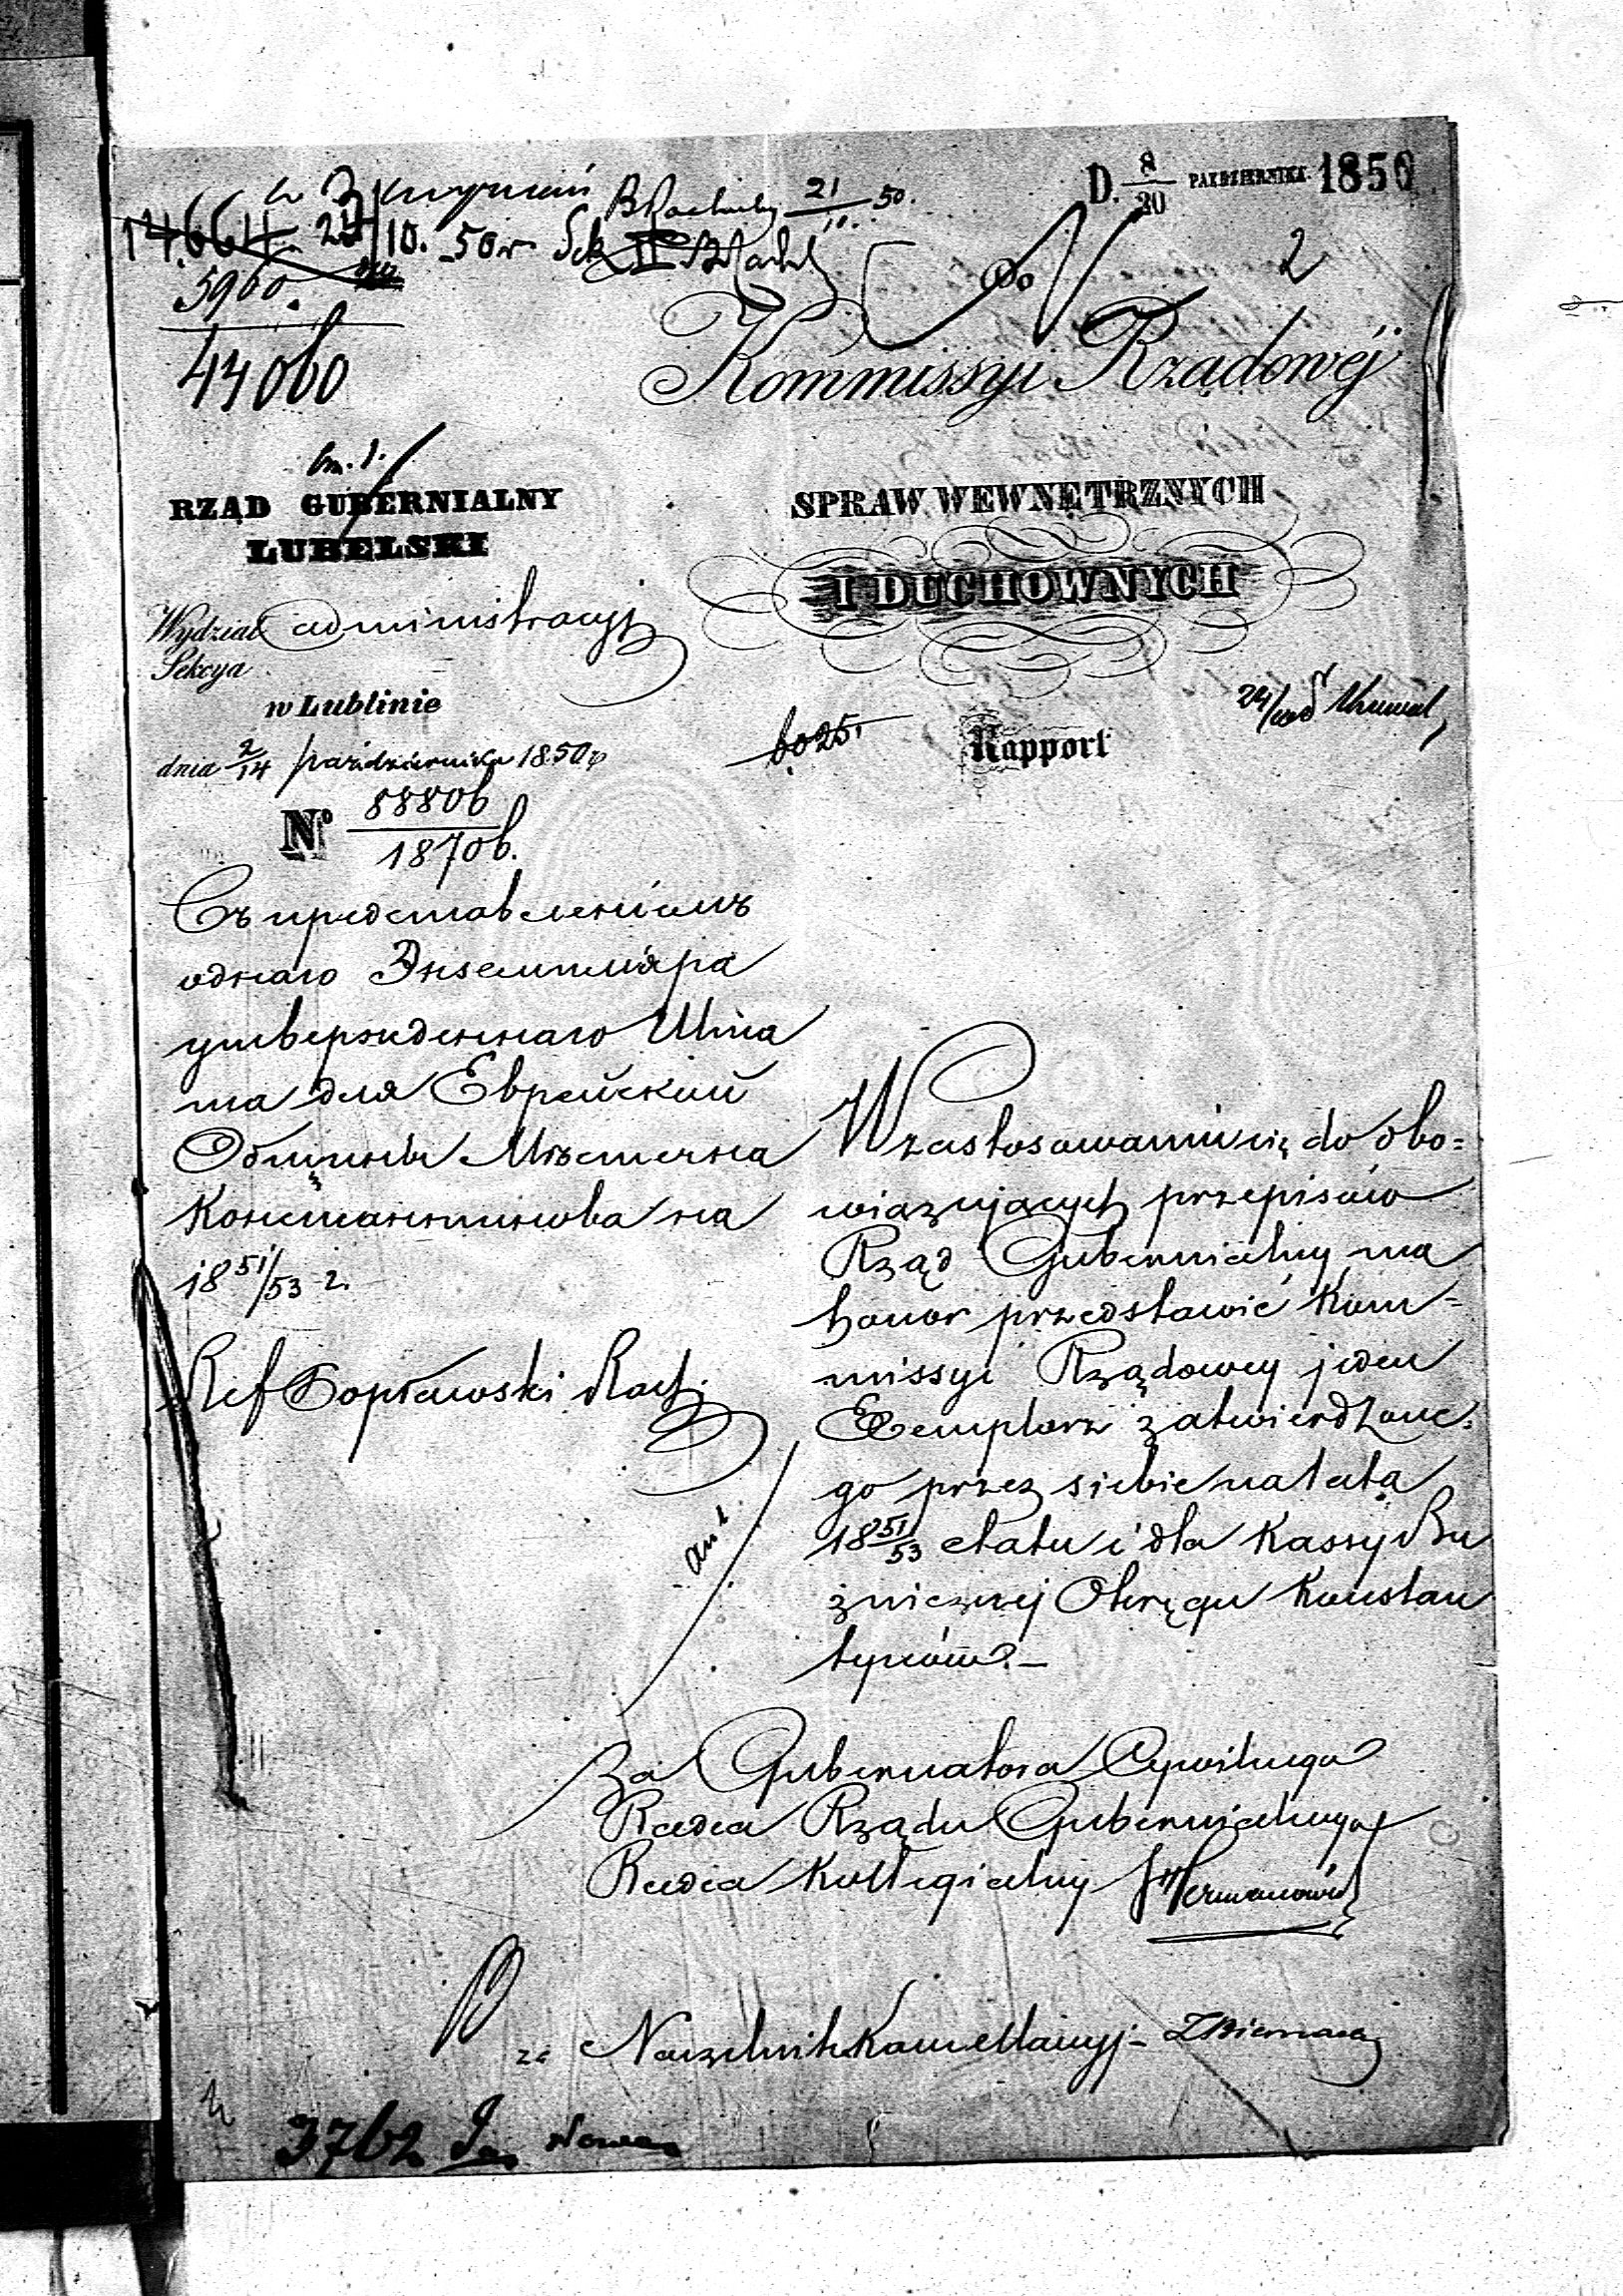 D. 8/20 PAŹDZIERNIKA 1850
21/10 50.
14664 24/10. 50 r Sek II
5960.
44060
2
Do
Kommissyi Rządowéj
RZĄD GUBERNIALNY
LUBELSKI
SPRAW WEWNĘTRZNYCH
I DUCHOWNYCH
Wydział administracyj
Sekcya
w Lublinie
dnia 2/14 październiku 1850 r
6025
Rapport
No 88806
18706.
Съ представленіемъ
однаго Экземпляра
утвержденнаго Шта
та для Еврейской
Общины Мѣстечка
Константинова на
18 51/53 г.
Ref Rach.
W zastosowaniu się do obo=
wiązujących przepisów
Rząd Gubernialny ma
honor przedstawić Kom=
missyi Rządowey jeden
Exemplarz zatwierdzone=
go przez siebie na lata
18 51/53 etatu i dla Kassy Bu
zniczney Okręgu Konstan
tynów.–
Za Gubernatora Cywilnego
Radca Rządu Gubernialnego
Radca Kollegialny Hermanowicz
za Naczelnik Kancellaryj–
3762